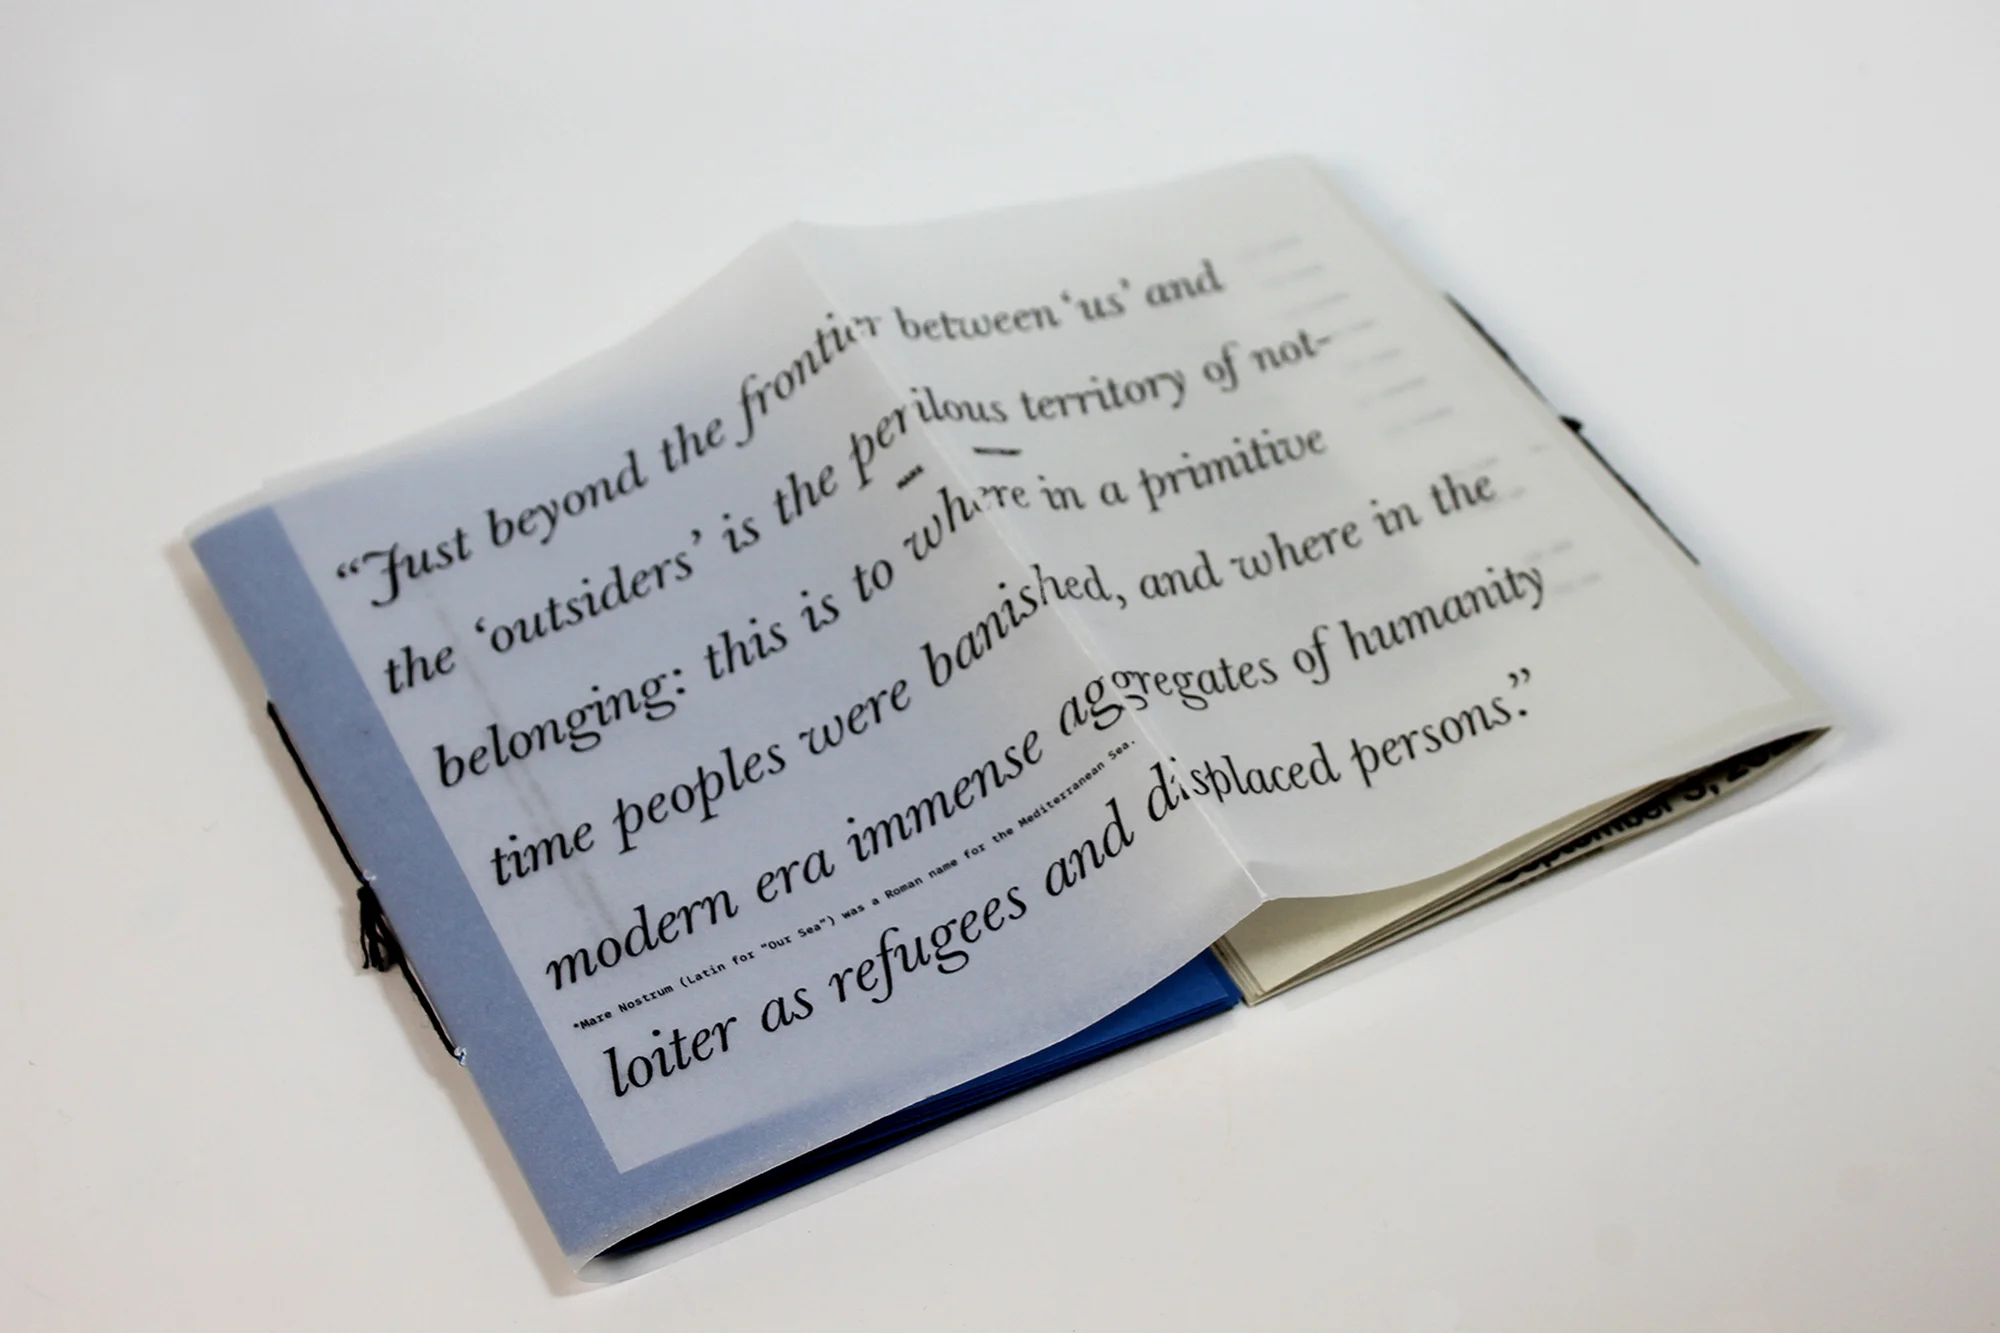 “Just beyond the frontier between ‘us’ and
the ‘outsiders’ is the perilous territory of not-
belonging: this is to where in a primitive
time peoples were banished, and where in the
modern era immense aggregates of humanity
*Mare Nostrum (Latin for "Our Sea") was a Roman name for the Mediterranean Sea.
loiter as refugees and displaced persons.”